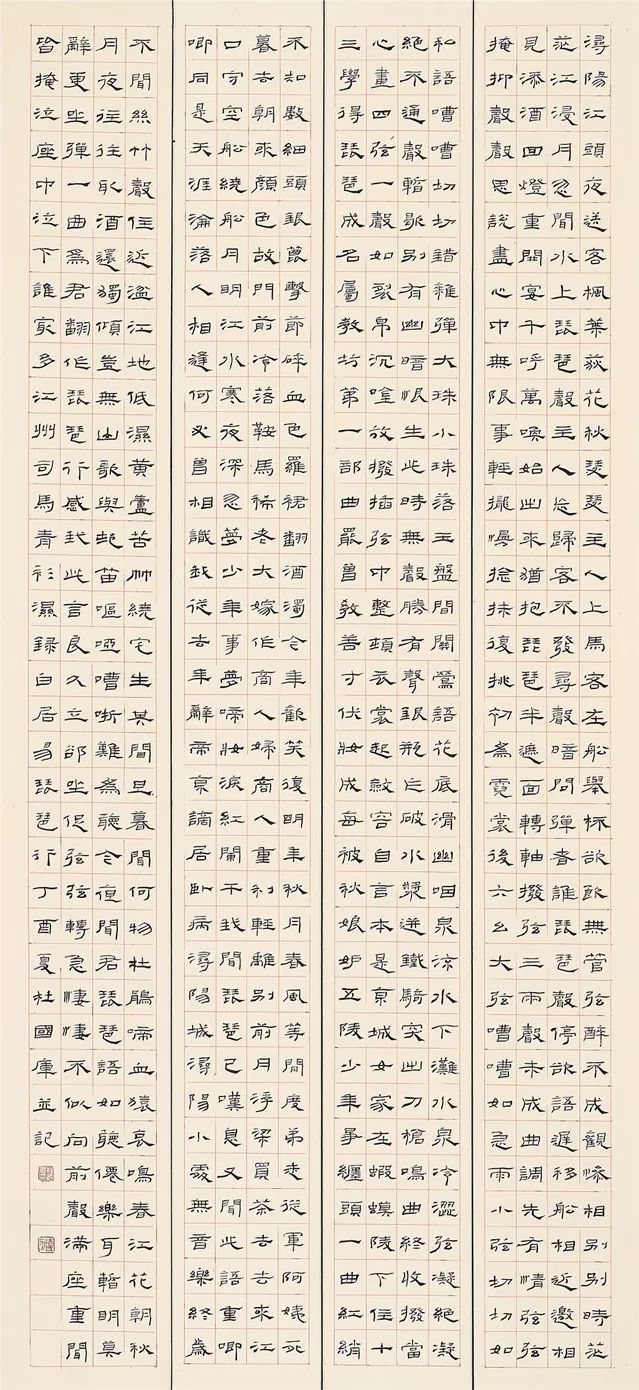 潯陽江頭夜送客楓葉荻花秋瑟瑟主人上馬客在船舉杯欲飲無管弦醉不成觀慘相別別時茫
茫江浸月忽聞水上琵琶聲主人忘歸客不發尋聲暗問彈者誰琵琶聲停欲語遲移船相近邀相
見添酒回燈重開宴千呼萬喚始出來猶抱琵琶半遮面轉軸撥弦三兩聲未成曲調先有情弦弦
掩抑聲聲思說盡心中無限事輕攏慢捻抹復挑初為霓裳後六幺大弦嘈嘈如急雨小弦切切如
私語嘈嘈切切錯雜彈大珠小珠落玉盤間關鶯語花底滑幽咽泉流水下灘水泉冷澀弦凝絕凝
絕不通聲暫歇別有幽暗恨生此時無聲勝有聲銀瓶乍破水漿迸鐵騎突出刀槍鳴曲終收撥當
心畫四弦一聲如裂帛沉吟放撥插弦中整頓衣裳起斂容自言本是京城女家在蝦蟆陵下住十
三學得琵琶成名屬教坊第一部曲罷曾教善才伏妝成每被秋娘妒五陵少年爭纏頭一曲紅綃
不知數細頭銀篦擊節碎血色羅裙翻酒濁今年歡笑復明年秋月春風等閒度弟走從軍阿姨死
暮去朝來顏色故門前冷落鞍馬稀老大嫁作商人婦商人重利輕離別前月浮梁買茶去去來江
口守空船繞船月明江水寒夜深忽夢少年事夢啼妝淚紅闌干我聞琵琶已嘆息又聞此語重唧
唧同是天涯淪落人相逢何必曾相識我從去年辭帝京謫居臥病潯陽城潯陽小處無音樂終歲
不聞絲竹聲住近湓江地低濕黃蘆苦竹繞宅生其間旦暮聞何物杜鵑啼血猿哀鳴春江花朝秋
月夜往往取酒還獨傾豈無山歌與村笛嘔啞嘈哳難為聽今夜聞君琵琶語如聽僊樂耳暫明莫
辭更坐彈一曲為君翻作琵琶行感我此言良久立卻坐促弦弦轉急淒淒不似向前聲滿座重聞
皆掩泣座中泣下誰最多江州司馬青衫濕錄白居易琵琶行丁酉夏杜國庫並記